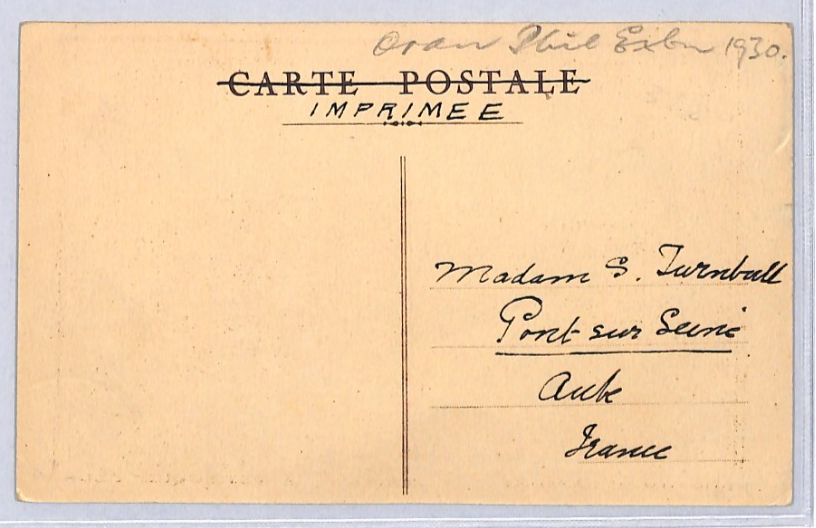 Oran Phil Exbn 1930.
CARTE POSTALE
IMPRIMEE
Madam S. Turnbull
Pont-sur Seine
Aube
France